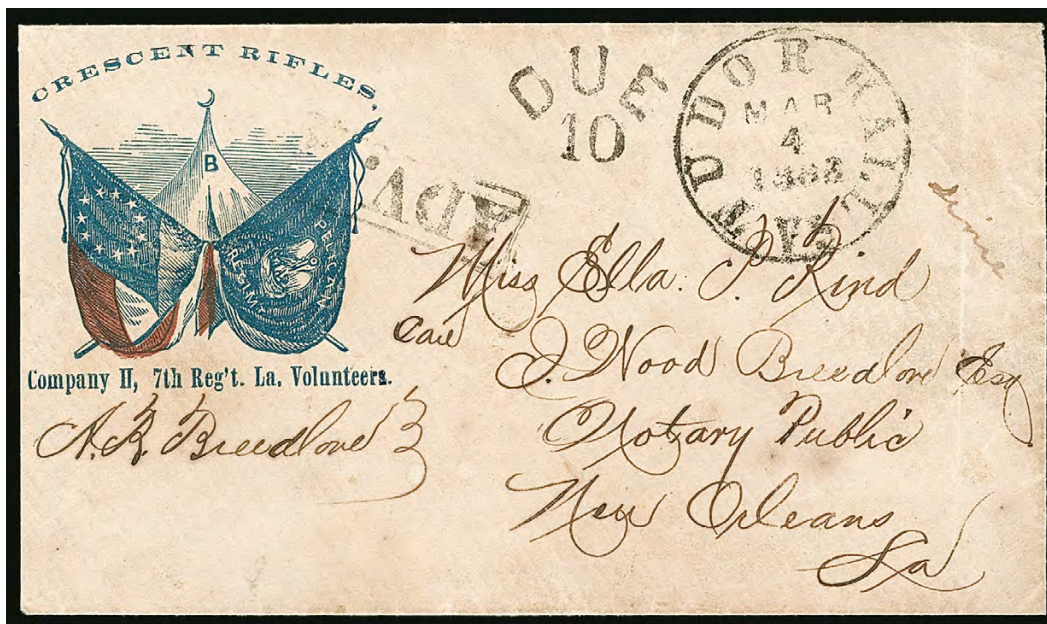 CRESCENT RIFLES,
B
PELICAN
REGIM
Company H, 7th Reg't. La. Volunteers.
A. R. Breedlove
DUE
10
TUDOR HALL
MAR
4
VA
ADV.
Miss Ella. P. Kind
Care
J. Wood Breedlove Esq
Notary Public
New Orleans
La